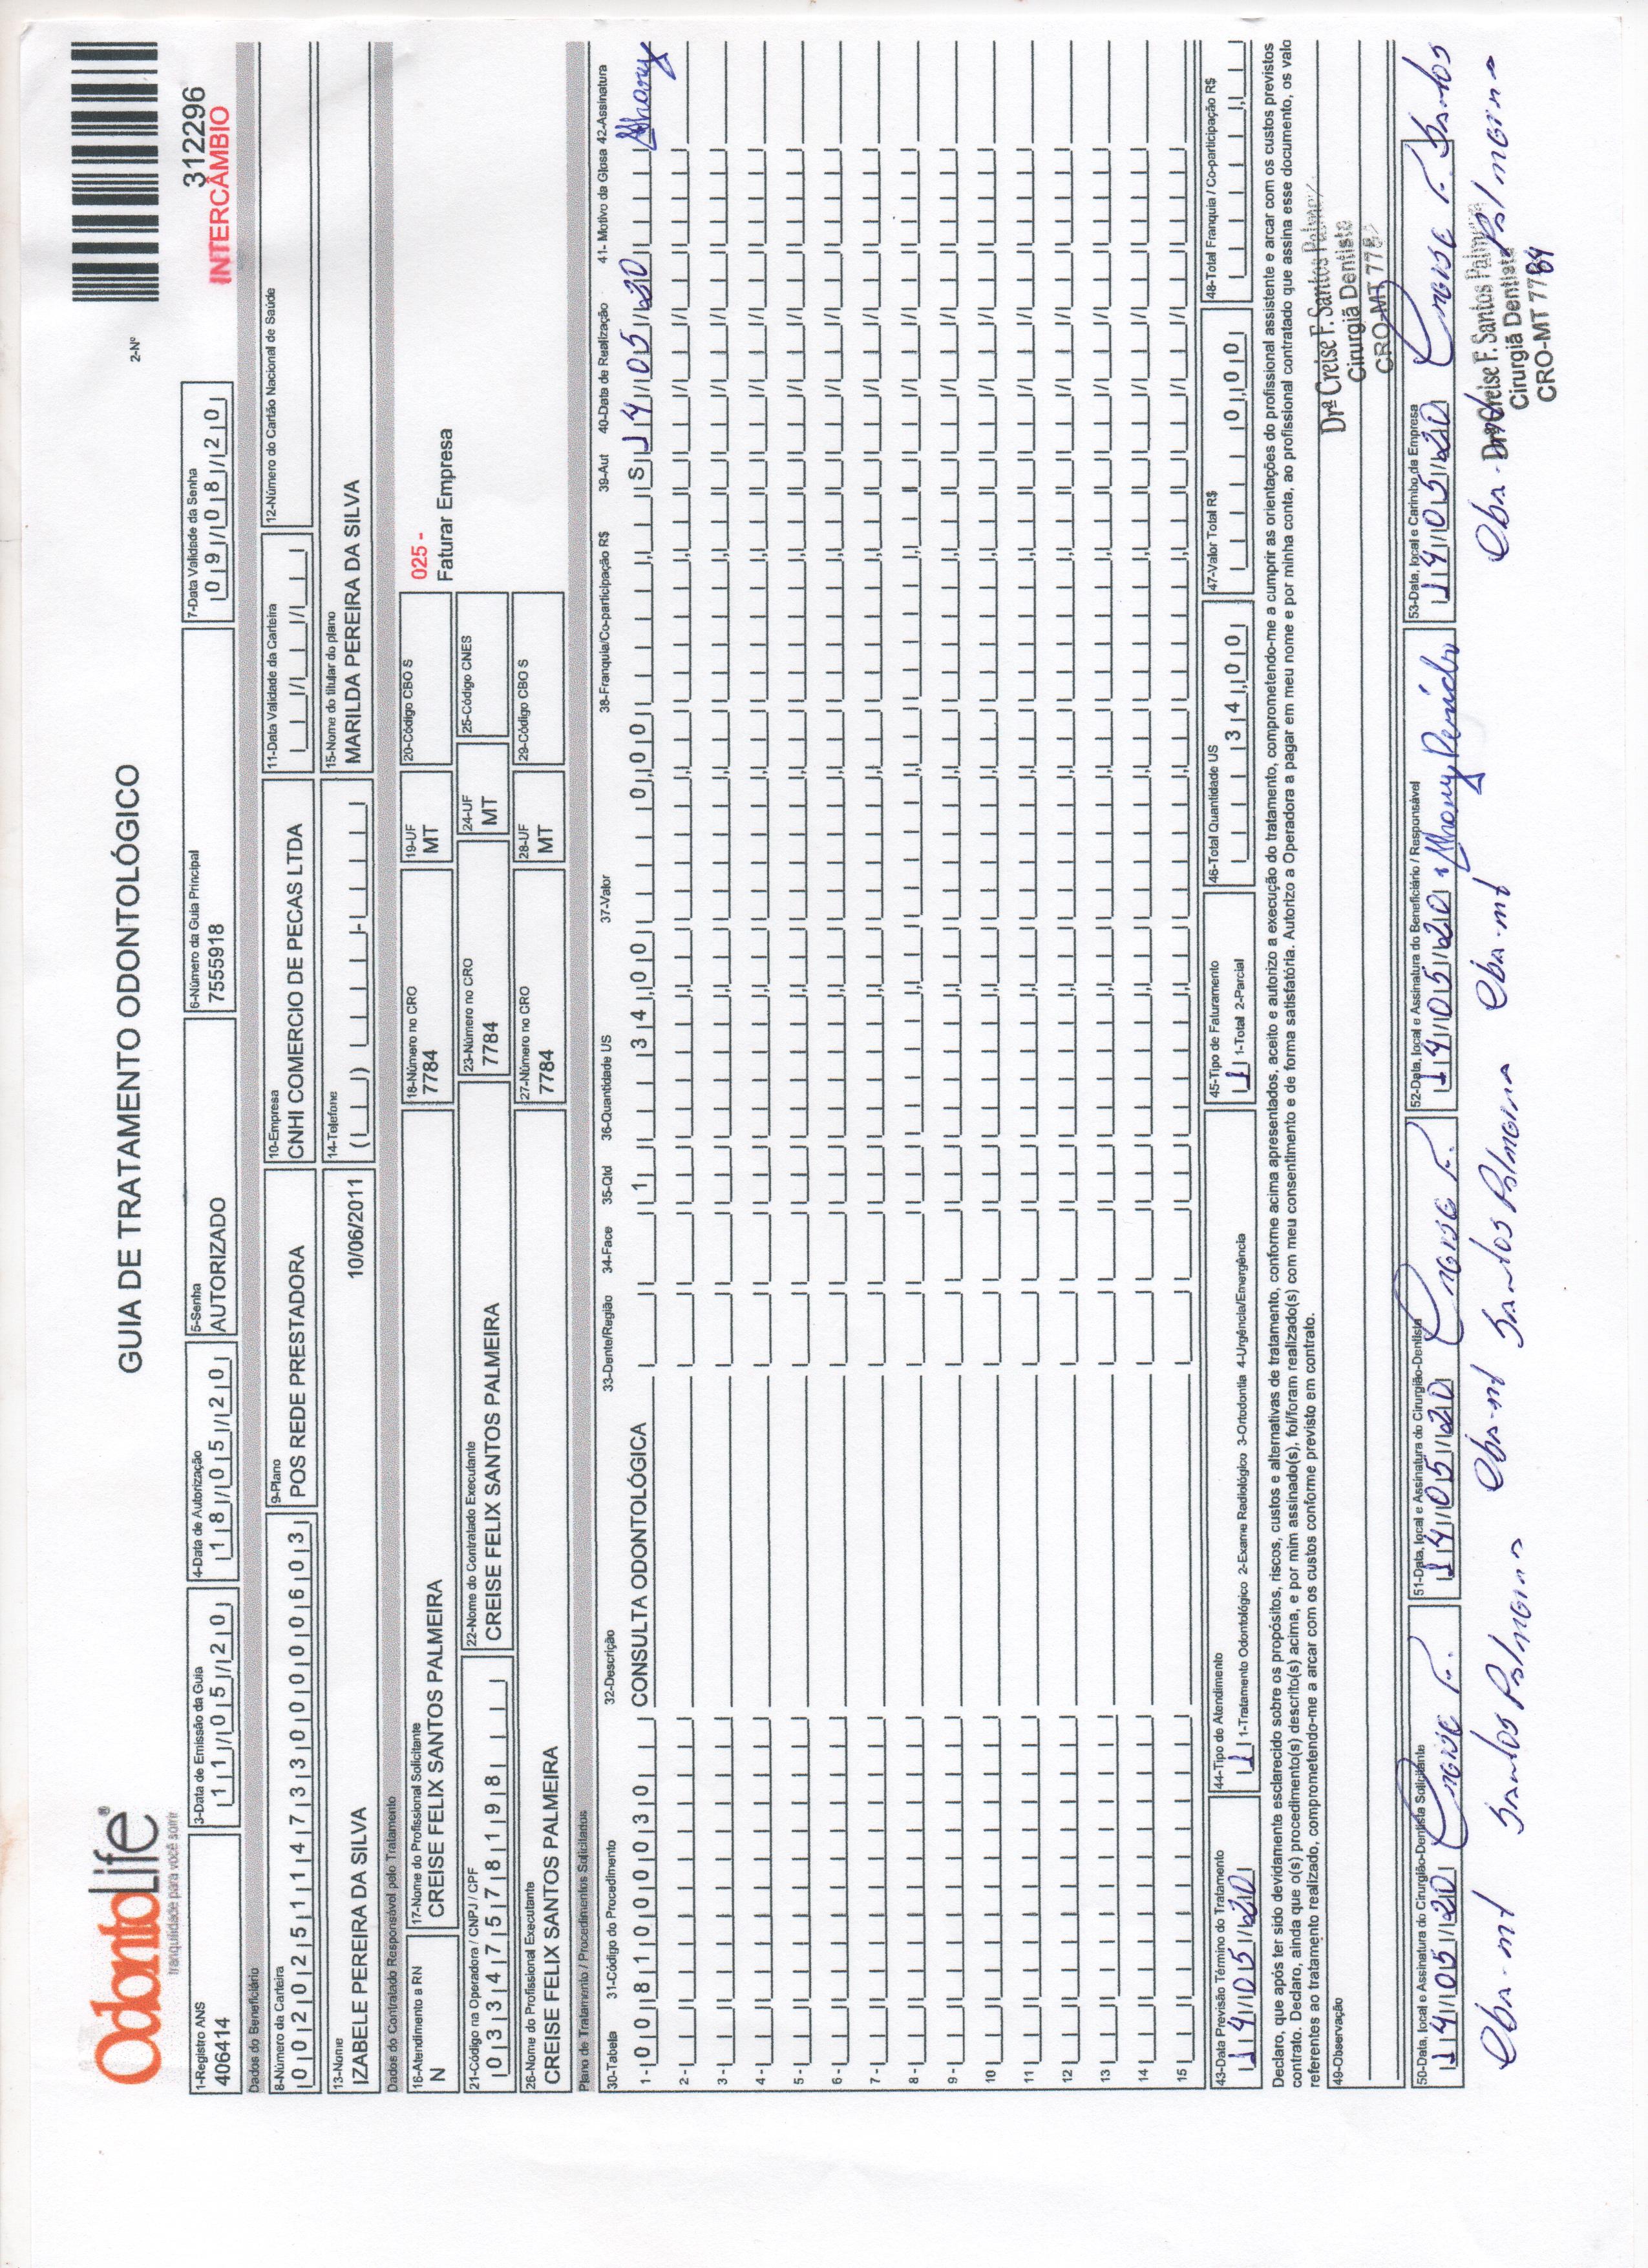 OdontoLife®
tranquilidade para você sorrir
GUIA DE TRATAMENTO ODONTOLÓGICO
2-Nº
312296
INTERCÂMBIO
1-Registro ANS 3-Data de Emissão da Guia 4-Data de Autorização 5-Senha 6-Número da Guia Principal 7-Data Validade da Senha
406414 11/05/20 18/05/20 AUTORIZADO 7555918 09/08/20
Dados do Beneficiário
8-Número da Carteira 9-Plano 10-Empresa 11-Data Validade da Carteira 12-Número do Cartão Nacional de Saúde
00202511473300000603 POS REDE PRESTADORA CNHI COMERCIO DE PECAS LTDA
13-Nome 14-Telefone 15-Nome do titular do plano
IZABELE PEREIRA DA SILVA 10/06/2011 MARILDA PEREIRA DA SILVA
Dados do Contratado Responsável pelo Tratamento
16-Atendimento a RN 17-Nome do Profissional Solicitante 18-Número no CRO 19-UF 20-Código CBO S
N CREISE FELIX SANTOS PALMEIRA 7784 MT
025 -
Faturar Empresa
21-Código na Operadora / CNPJ / CPF 22-Nome do Contratado Executante 23-Número no CRO 24-UF 25-Código CNES
03347578198 CREISE FELIX SANTOS PALMEIRA 7784 MT
26-Nome do Profissional Executante 27-Número no CRO 28-UF 29-Código CBO S
CREISE FELIX SANTOS PALMEIRA 7784 MT
Plano de Tratamento / Procedimentos Solicitados
30-Tabela 31-Código do Procedimento 32-Descrição 33-Dente/Região 34-Face 35-Qtd 36-Quantidade US 37-Valor 38-Franquia/Co-participação R$ 39-Aut 40-Data de Realização 41- Motivo da Glosa 42-Assinatura
1 - 00 81000030 CONSULTA ODONTOLÓGICA 1 34,00 0,00 S 14/05/20
2 -
3 -
4 -
5 -
6 -
7 -
8 -
9 -
10
11
12
13
14
15
43-Data Previsão Término do Tratamento 44-Tipo de Atendimento 45-Tipo de Faturamento 46-Total Quantidade US 47-Valor Total R$ 48-Total Franquia / Co-participação R$
14/05/20 1 1-Tratamento Odontológico 2-Exame Radiológico 3-Ortodontia 4-Urgência/Emergência 1 1-Total 2-Parcial 34,00 0,00
Declaro, que após ter sido devidamente esclarecido sobre os propósitos, riscos, custos e alternativas de tratamento, conforme acima apresentados, aceito e autorizo a execução do tratamento, comprometendo-me a cumprir as orientações do profissional assistente e arcar com os custos previstos
contrato. Declaro, ainda que o(s) procedimento(s) descrito(s) acima, e por mim assinado(s), foi/foram realizado(s) com meu consentimento e de forma satisfatória. Autorizo a Operadora a pagar em meu nome e por minha conta, ao profissional contratado que assina esse documento, os valo
referentes ao tratamento realizado, comprometendo-me a arcar com os custos conforme previsto em contrato.
49-Observação
Drª Creise F. Santos Palmei
Cirurgiã Dentista
CRO-MT 778
50-Data, local e Assinatura do Cirurgião-Dentista Solicitante 51-Data, local e Assinatura do Cirurgião-Dentista 52-Data, local e Assinatura do Beneficiário / Responsável 53-Data, local e Carimbo da Empresa
14/05/20 Creise F. 14/05/20 Creise F. 14/05/20 14/05/20 Creise F. Santos
Cba-mt Santos Palmeira Cba-mt Santos Palmeira Cba-mt Cba-mt Palmeira
Drª Creise F. Santos Palmeira
Cirurgiã Dentista
CRO-MT 7784